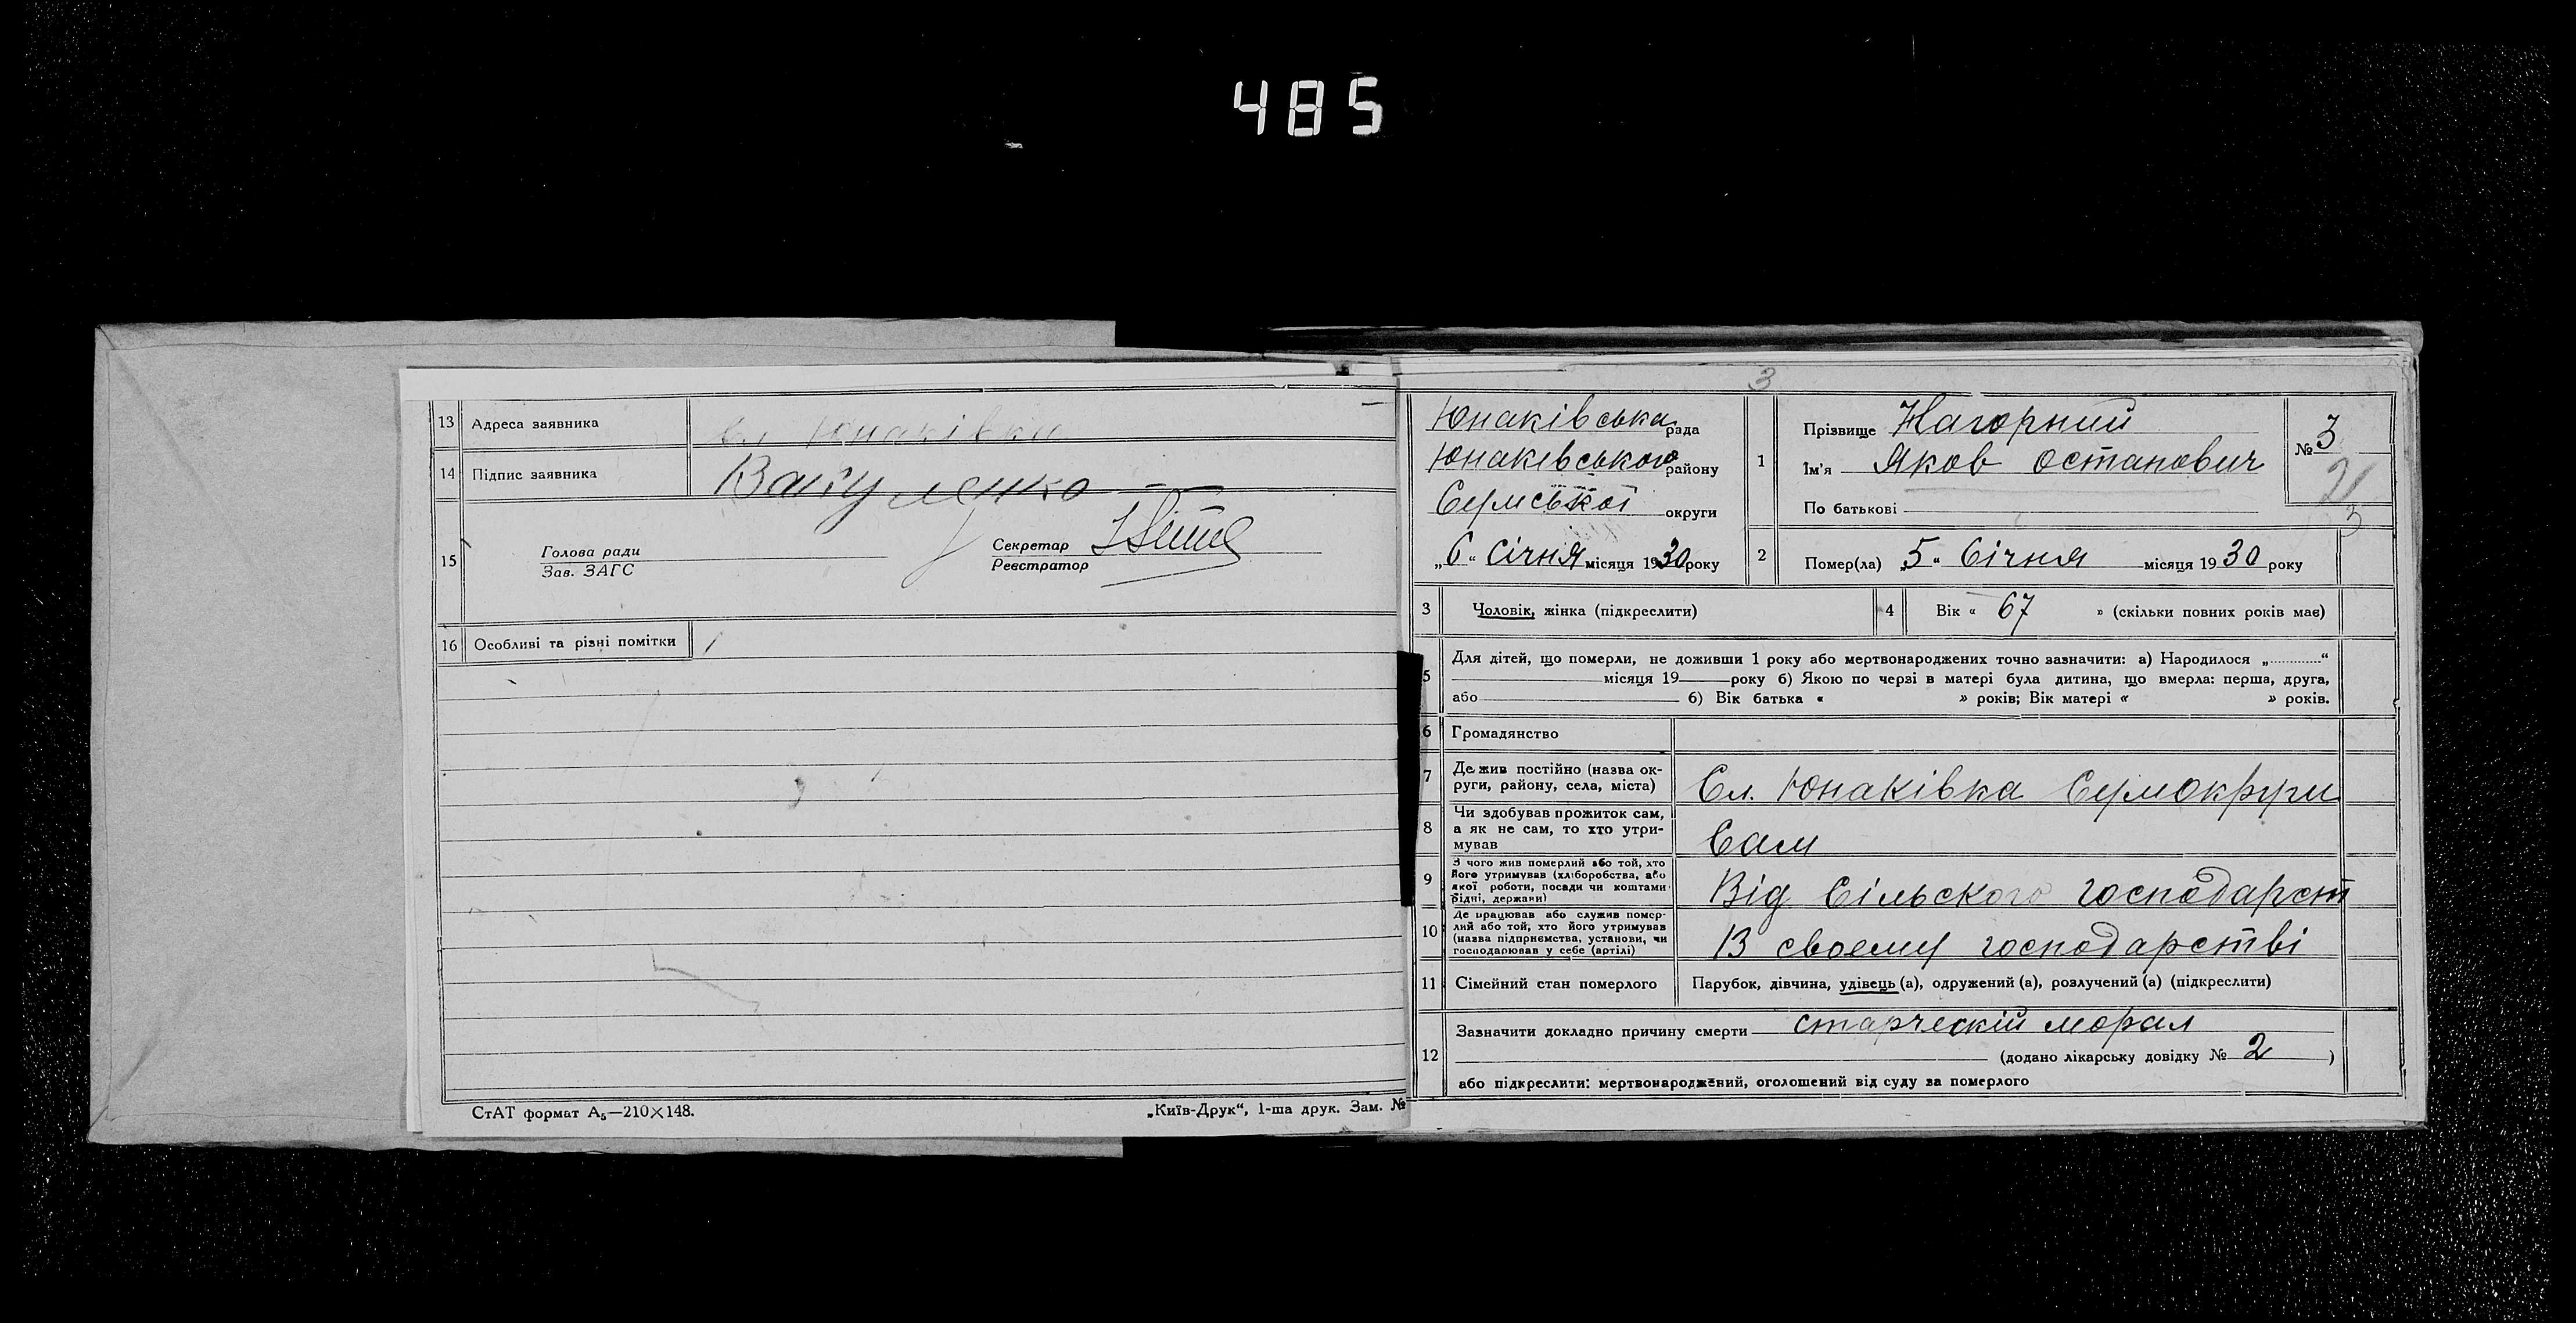 485
13 Адреса заявника сл Юнаківка
14 Підпис заявника Вакуленко
15 Голова ради
Зав. ЗАГС
Секретар
Реєстратор
16 Особливі та різні помітки
СтАТ формат А₅—210×148.
„Київ-Друк“, 1-ша друк. Зам. №
3
Юнаківська рада
Юнаківського району
Сумської округи
„6“ Січня місяця 1930 року
1 Прізвище Нагорний
Ім'я Яков Остапович
По батькові
№ 3
21
3
2 Помер(ла) „5“ Січня місяця 1930 року
3 Чоловік, жінка (підкреслити)
4 Вік « 67 » (скільки повних років має)
5 Для дітей, що померли, не доживши 1 року або мертвонароджених точно зазначити: а) Народилося „............“
місяця 19 року б) Якою по черзі в матері була дитина, що вмерла: перша, друга,
або 6) Вік батька « » років; Вік матері « » років.
6 Громадянство
7 Де жив постійно (назва ок-
руги, району, села, міста) Сл. Юнаківка Сумокруги
8 Чи здобував прожиток сам,
а як не сам, то хто утри-
мував Сам
9 З чого жив померлий або той, хто
його утримував (хліборобства, або
якої роботи, посади чи коштами
рідні, держави) Від Сільского господарст
10 Де працював або служив помер-
лий або той, хто його утримував
(назва підприємства, установи, чи
господарював у себе (артілі) В своему господарстві
11 Сімейний стан померлого Парубок, дівчина, удівець (а), одружений (а), розлучений (а) (підкреслити)
12 Зазначити докладно причину смерти старческій морал
(додано лікарську довідку № 2 )
або підкреслити: мертвонароджений, оголошений від суду за померлого